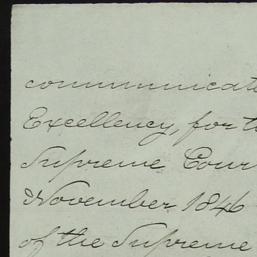 communicate
Excellency, for t
Supreme Cour
November 1846
of the Supreme